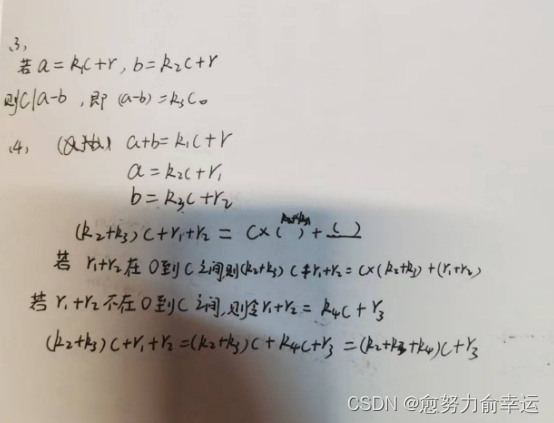 (3)
若 a=k₁c+r, b=k₂c+r
则c|a-b, 即 (a-b)=k₃c。
(4) a+b=k₁c+r
a=k₂c+r₁
b=k₃c+r₂
(k₂+k₃)c+r₁+r₂ = c×( )+( )
若 r₁+r₂在0到c之间则(k₂+k₃)c+r₁+r₂=c×(k₂+k₃)+(r₁+r₂)
若 r₁+r₂不在0到c之间,则令r₁+r₂=k₄c+r₃
(k₂+k₃)c+r₁+r₂=(k₂+k₃)c+k₄c+r₃=(k₂+k₃+k₄)c+r₃
CSDN @愈努力俞幸运